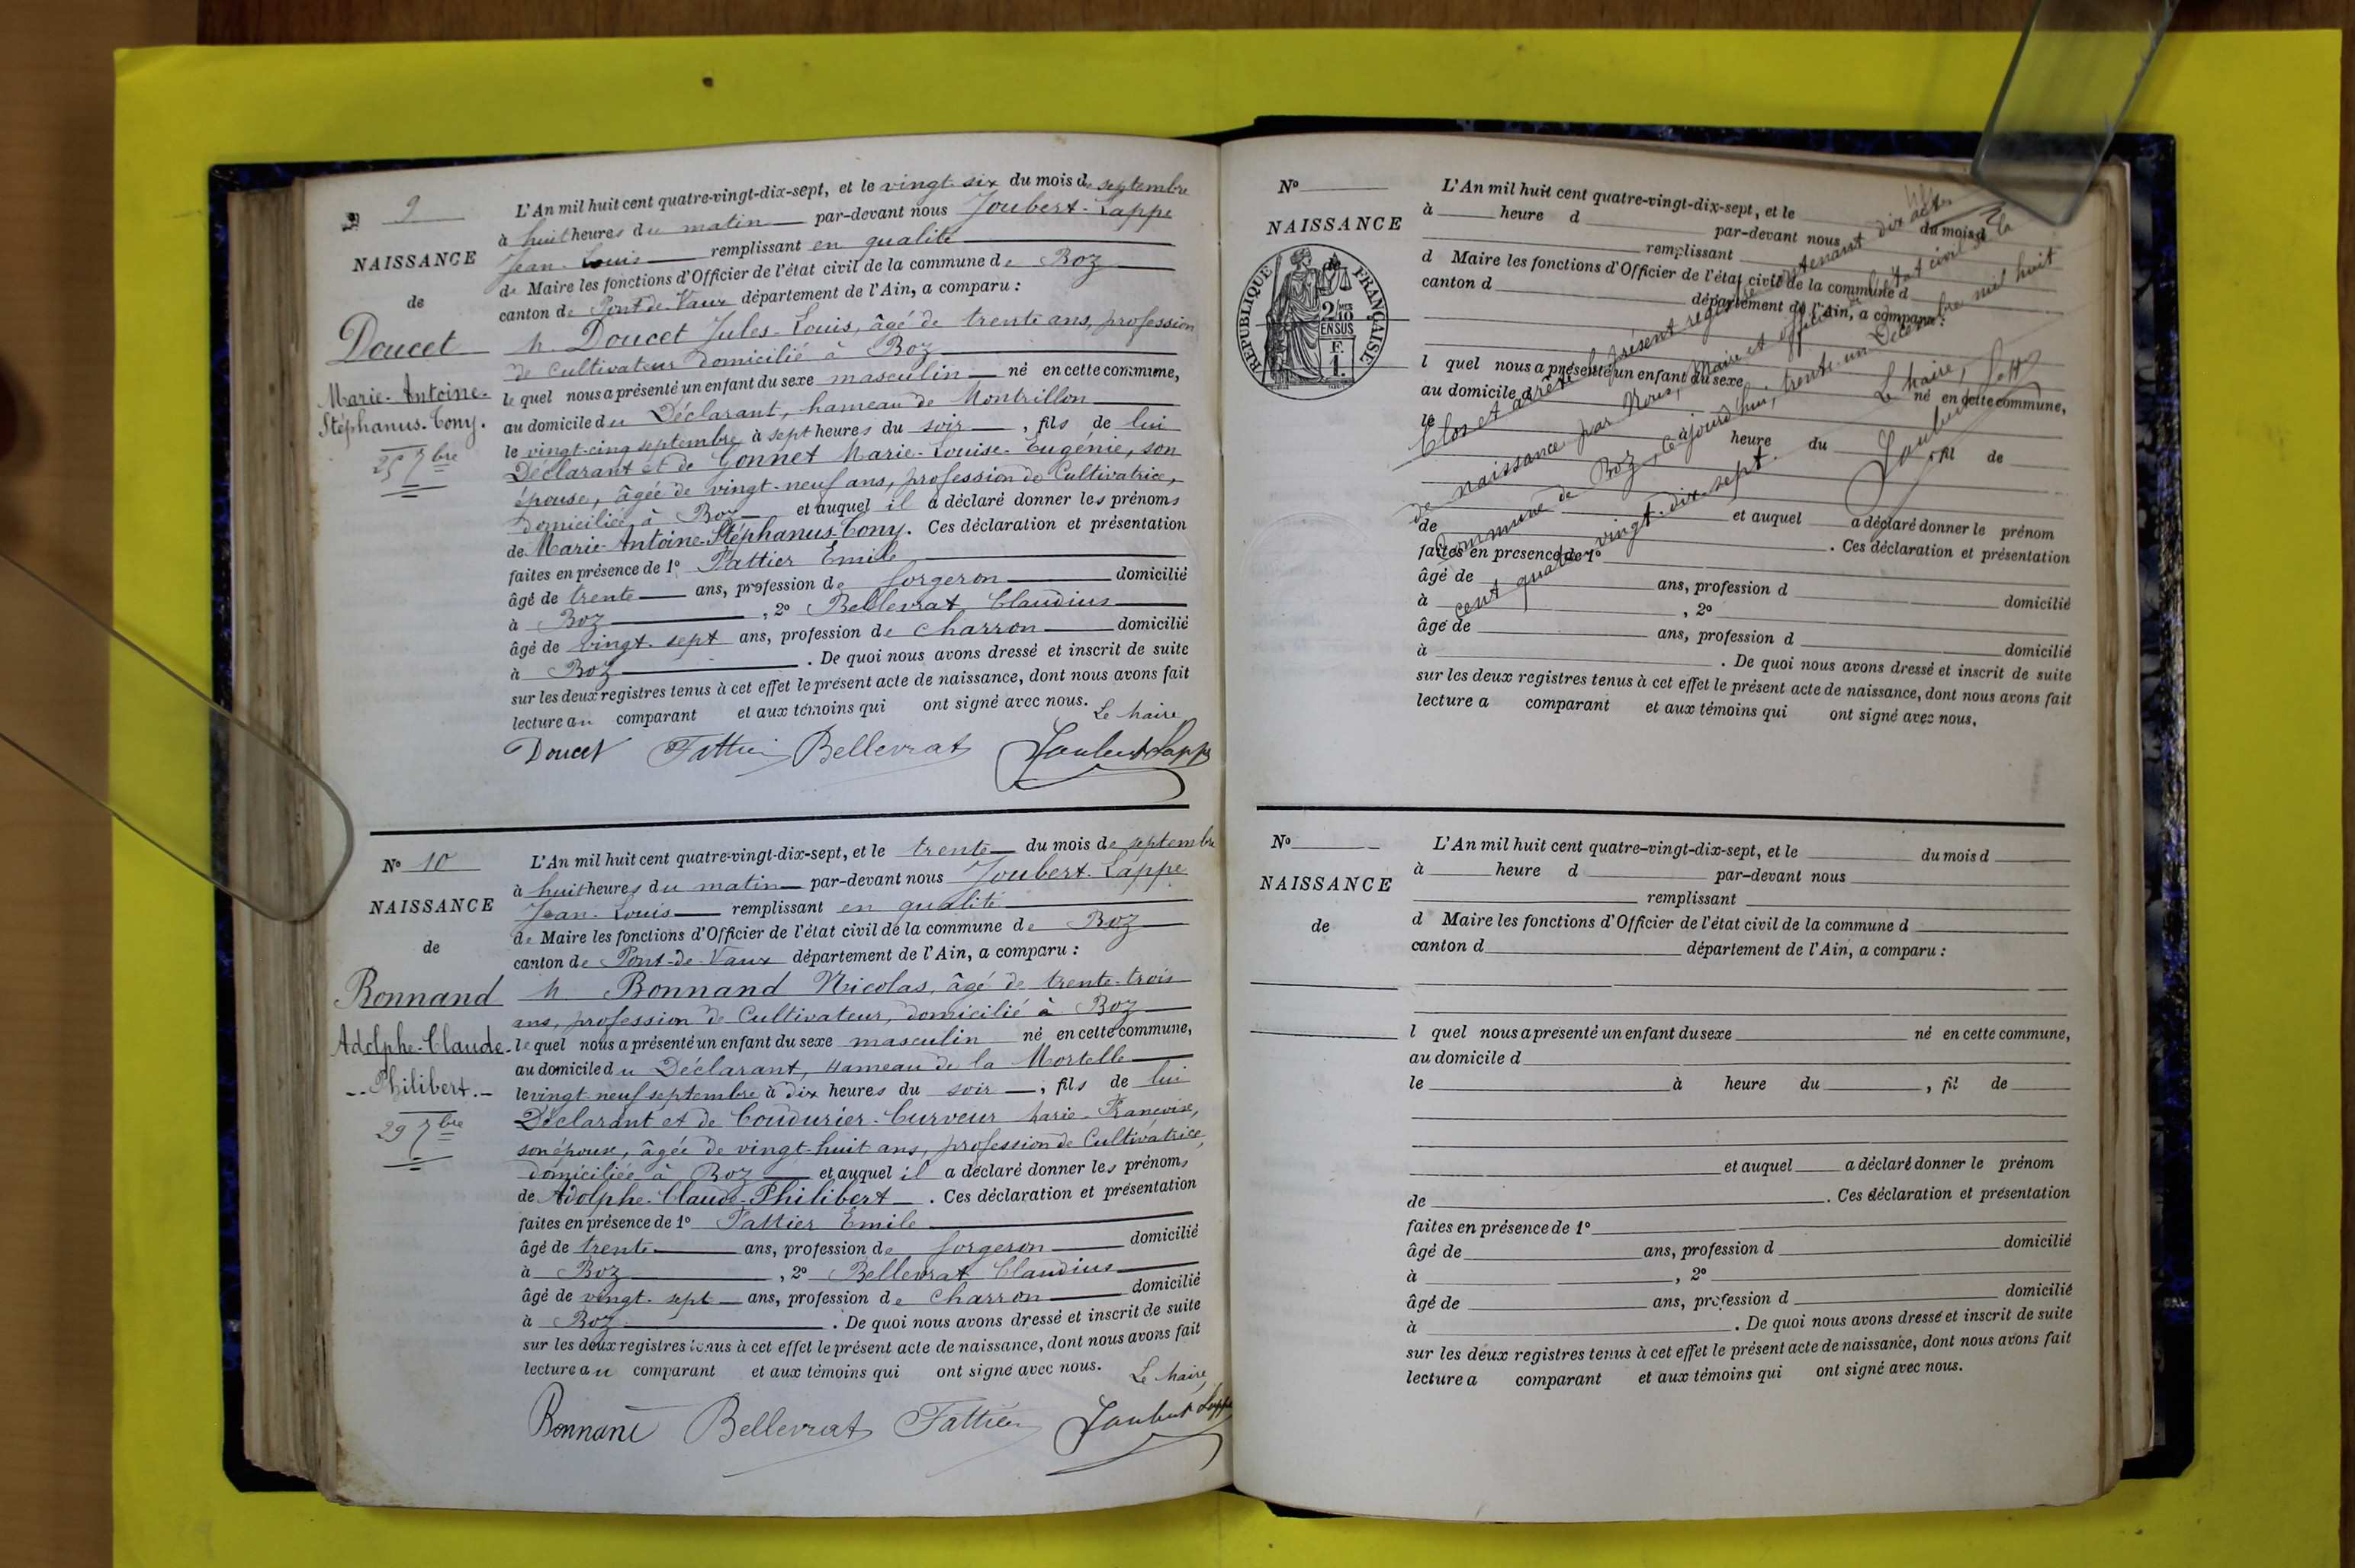 9
NAISSANCE
de
Doucet
Marie-Antoine-
Stéphanus-Tony.
25 7bre
L'An mil huit cent quatre-vingt-dix-sept, et le vingt-six du mois de septembre
à huit heures du matin par-devant nous Joubert-Lappe
Jean-Louis remplissant en qualité
de Maire les fonctions d'Officier de l'état civil de la commune de Boz
canton de Pont-de-Vaux département de l'Ain, a comparu :
M. Doucet Jules-Louis, âgé de trente ans, profession
de Cultivateur domicilié à Boz
lequel nous a présenté un enfant du sexe masculin né en cette commune,
au domicile du Déclarant, hameau de Montrillon
le vingt-cinq septembre à sept heures du soir , fils de lui
Déclarant et de Gonnet Marie-Louise-Eugénie, son
épouse, âgée de vingt-neuf ans, profession de Cultivatrice,
domiciliée à Boz et auquel il a déclaré donner les prénoms
de Marie-Antoine-Stéphanus-Tony. Ces déclaration et présentation
faites en présence de 1° Fattier Emile
âgé de trente ans, profession de forgeron domicilié
à Boz , 2° Bellevrat Claudius
âgé de vingt-sept ans, profession de charron domicilié
à Boz . De quoi nous avons dressé et inscrit de suite
sur les deux registres tenus à cet effet le présent acte de naissance, dont nous avons fait
lecture au comparant et aux témoins qui ont signé avec nous.
Le Maire
Doucet Fattier Bellevrat Joubert Lappe
N° 10
NAISSANCE
de
Bonnand
Adolphe-Claude-
Philibert.
29 7bre
L'An mil huit cent quatre-vingt-dix-sept, et le trente du mois de septembre
à huit heures du matin par-devant nous Joubert-Lappe
Jean-Louis remplissant en qualité
de Maire les fonctions d'Officier de l'état civil de la commune de Boz
canton de Pont-de-Vaux département de l'Ain, a comparu :
M. Bonnand Nicolas, âgé de trente-trois
ans, profession de Cultivateur, domicilié à Boz
lequel nous a présenté un enfant du sexe masculin né en cette commune,
au domicile du Déclarant, Hameau de la Mortelle
le vingt-neuf septembre à dix heures du soir , fils de lui
Déclarant et de Coudurier-Curveur Marie-Françoise,
son épouse, âgée de vingt-huit ans, profession de Cultivatrice,
domiciliée à Boz et auquel il a déclaré donner les prénoms
de Adolphe-Claude-Philibert . Ces déclaration et présentation
faites en présence de 1° Fattier Emile
âgé de trente ans, profession de forgeron domicilié
à Boz , 2° Bellevrat Claudius
âgé de vingt-sept ans, profession de charron domicilié
à Boz . De quoi nous avons dressé et inscrit de suite
sur les deux registres tenus à cet effet le présent acte de naissance, dont nous avons fait
lecture au comparant et aux témoins qui ont signé avec nous.
Le Maire,
Bonnand Bellevrat Fattier Joubert Lappe
N°
NAISSANCE
REPUBLIQUE FRANÇAISE
2/10
EN SUS
F.
1.
L'An mil huit cent quatre-vingt-dix-sept, et le du mois d
à heure d par-devant nous
remplissant
d Maire les fonctions d'Officier de l'état civil de la commune d
canton d département de l'Ain, a comparu :
l quel nous a présenté un enfant du sexe né en cette commune,
au domicile d
le à heure du , fil de
et auquel a déclaré donner le prénom
de . Ces déclaration et présentation
faites en présence de 1°
âgé de ans, profession d domicilié
à , 2°
âgé de ans, profession d domicilié
à . De quoi nous avons dressé et inscrit de suite
sur les deux registres tenus à cet effet le présent acte de naissance, dont nous avons fait
lecture a comparant et aux témoins qui ont signé avec nous.
Clos et arrêté le présent registre contenant dix actes
de naissance par Nous, Maire et officier de l'état civil de la
Commune de Boz, ce jourd'hui, trente-un Décembre mil huit
cent quatre vingt-dix-sept.
Le Maire,
Joubert
N°
NAISSANCE
de
L'An mil huit cent quatre-vingt-dix-sept, et le du mois d
à heure d par-devant nous
remplissant
d Maire les fonctions d'Officier de l'état civil de la commune d
canton d département de l'Ain, a comparu :
l quel nous a présenté un enfant du sexe né en cette commune,
au domicile d
le à heure du , fil de
et auquel a déclaré donner le prénom
de . Ces déclaration et présentation
faites en présence de 1°
âgé de ans, profession d domicilié
à , 2°
âgé de ans, profession d domicilié
à . De quoi nous avons dressé et inscrit de suite
sur les deux registres tenus à cet effet le présent acte de naissance, dont nous avons fait
lecture a comparant et aux témoins qui ont signé avec nous.